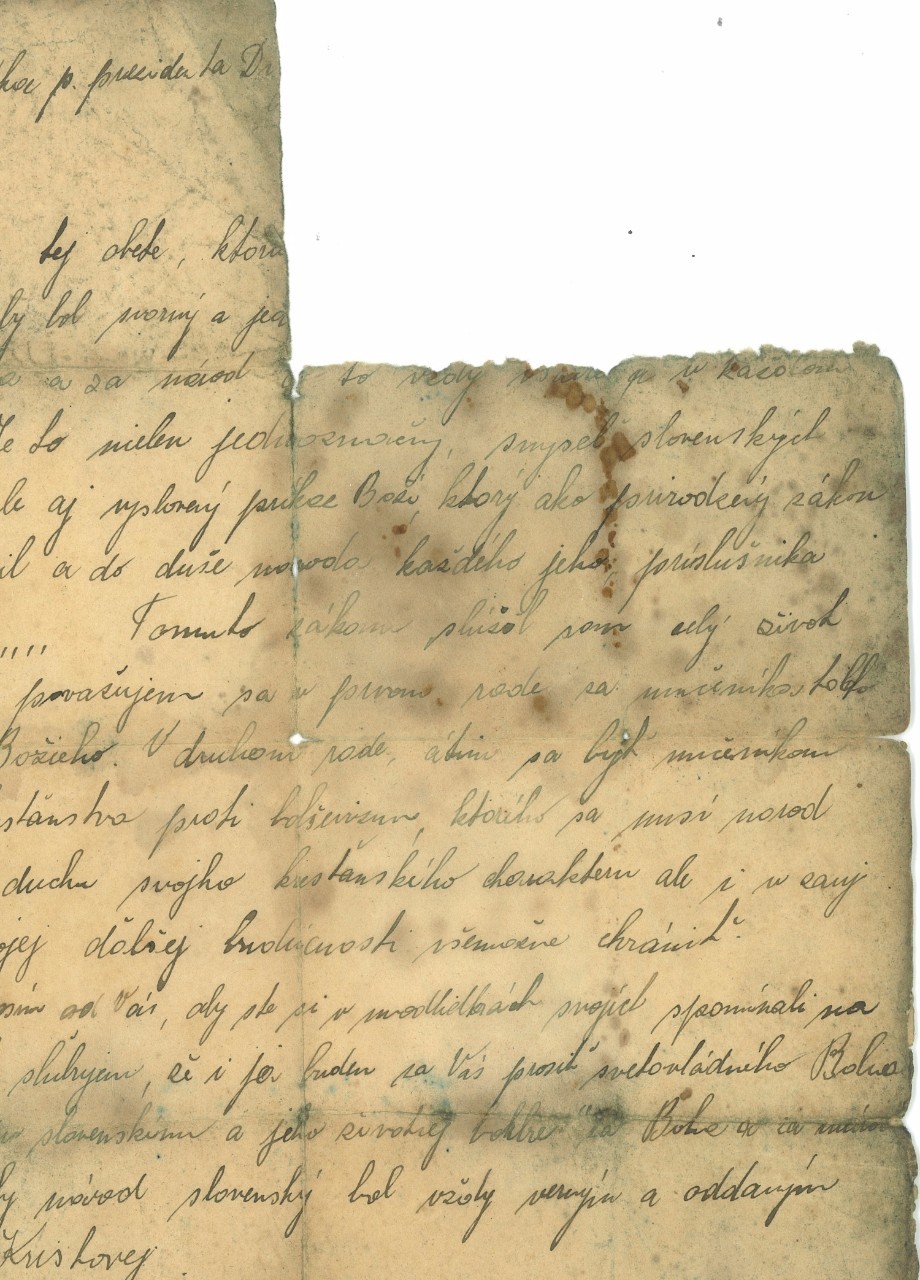 p. prezidenta Dr
tej obete, ktorú
by bol svorný a jed
a a za národ to vždy v každom
Je to nielen jednoznačný, smysel slovenských
le aj vyslovený príkaz Boží, ktorý ako prirodzený zákon
il a do duše národa každého jeho príslušníka
,,,, Tomuto zákonu slúžil som celý život
považujem sa v prvom rade za mučeníka tohto
Božieho. V druhom rade, cítim sa byť mučeníkom
sťanstva proti bolševizmu, ktorého sa musí národ
duchu svojho kresťanského charakteru ale i v zauj
ojej ďalšej budúcnosti všemožne chrániť.
osím od Vás, aby ste si v modlidbách svojich spomínali na
slubujem, že i ja budem za Vás prosiť svetovládného Boha
slovenskému a jeho životnej borbe "Za Boha a za národ
by národ slovenský bol vždy verným a oddaným
Kristovej